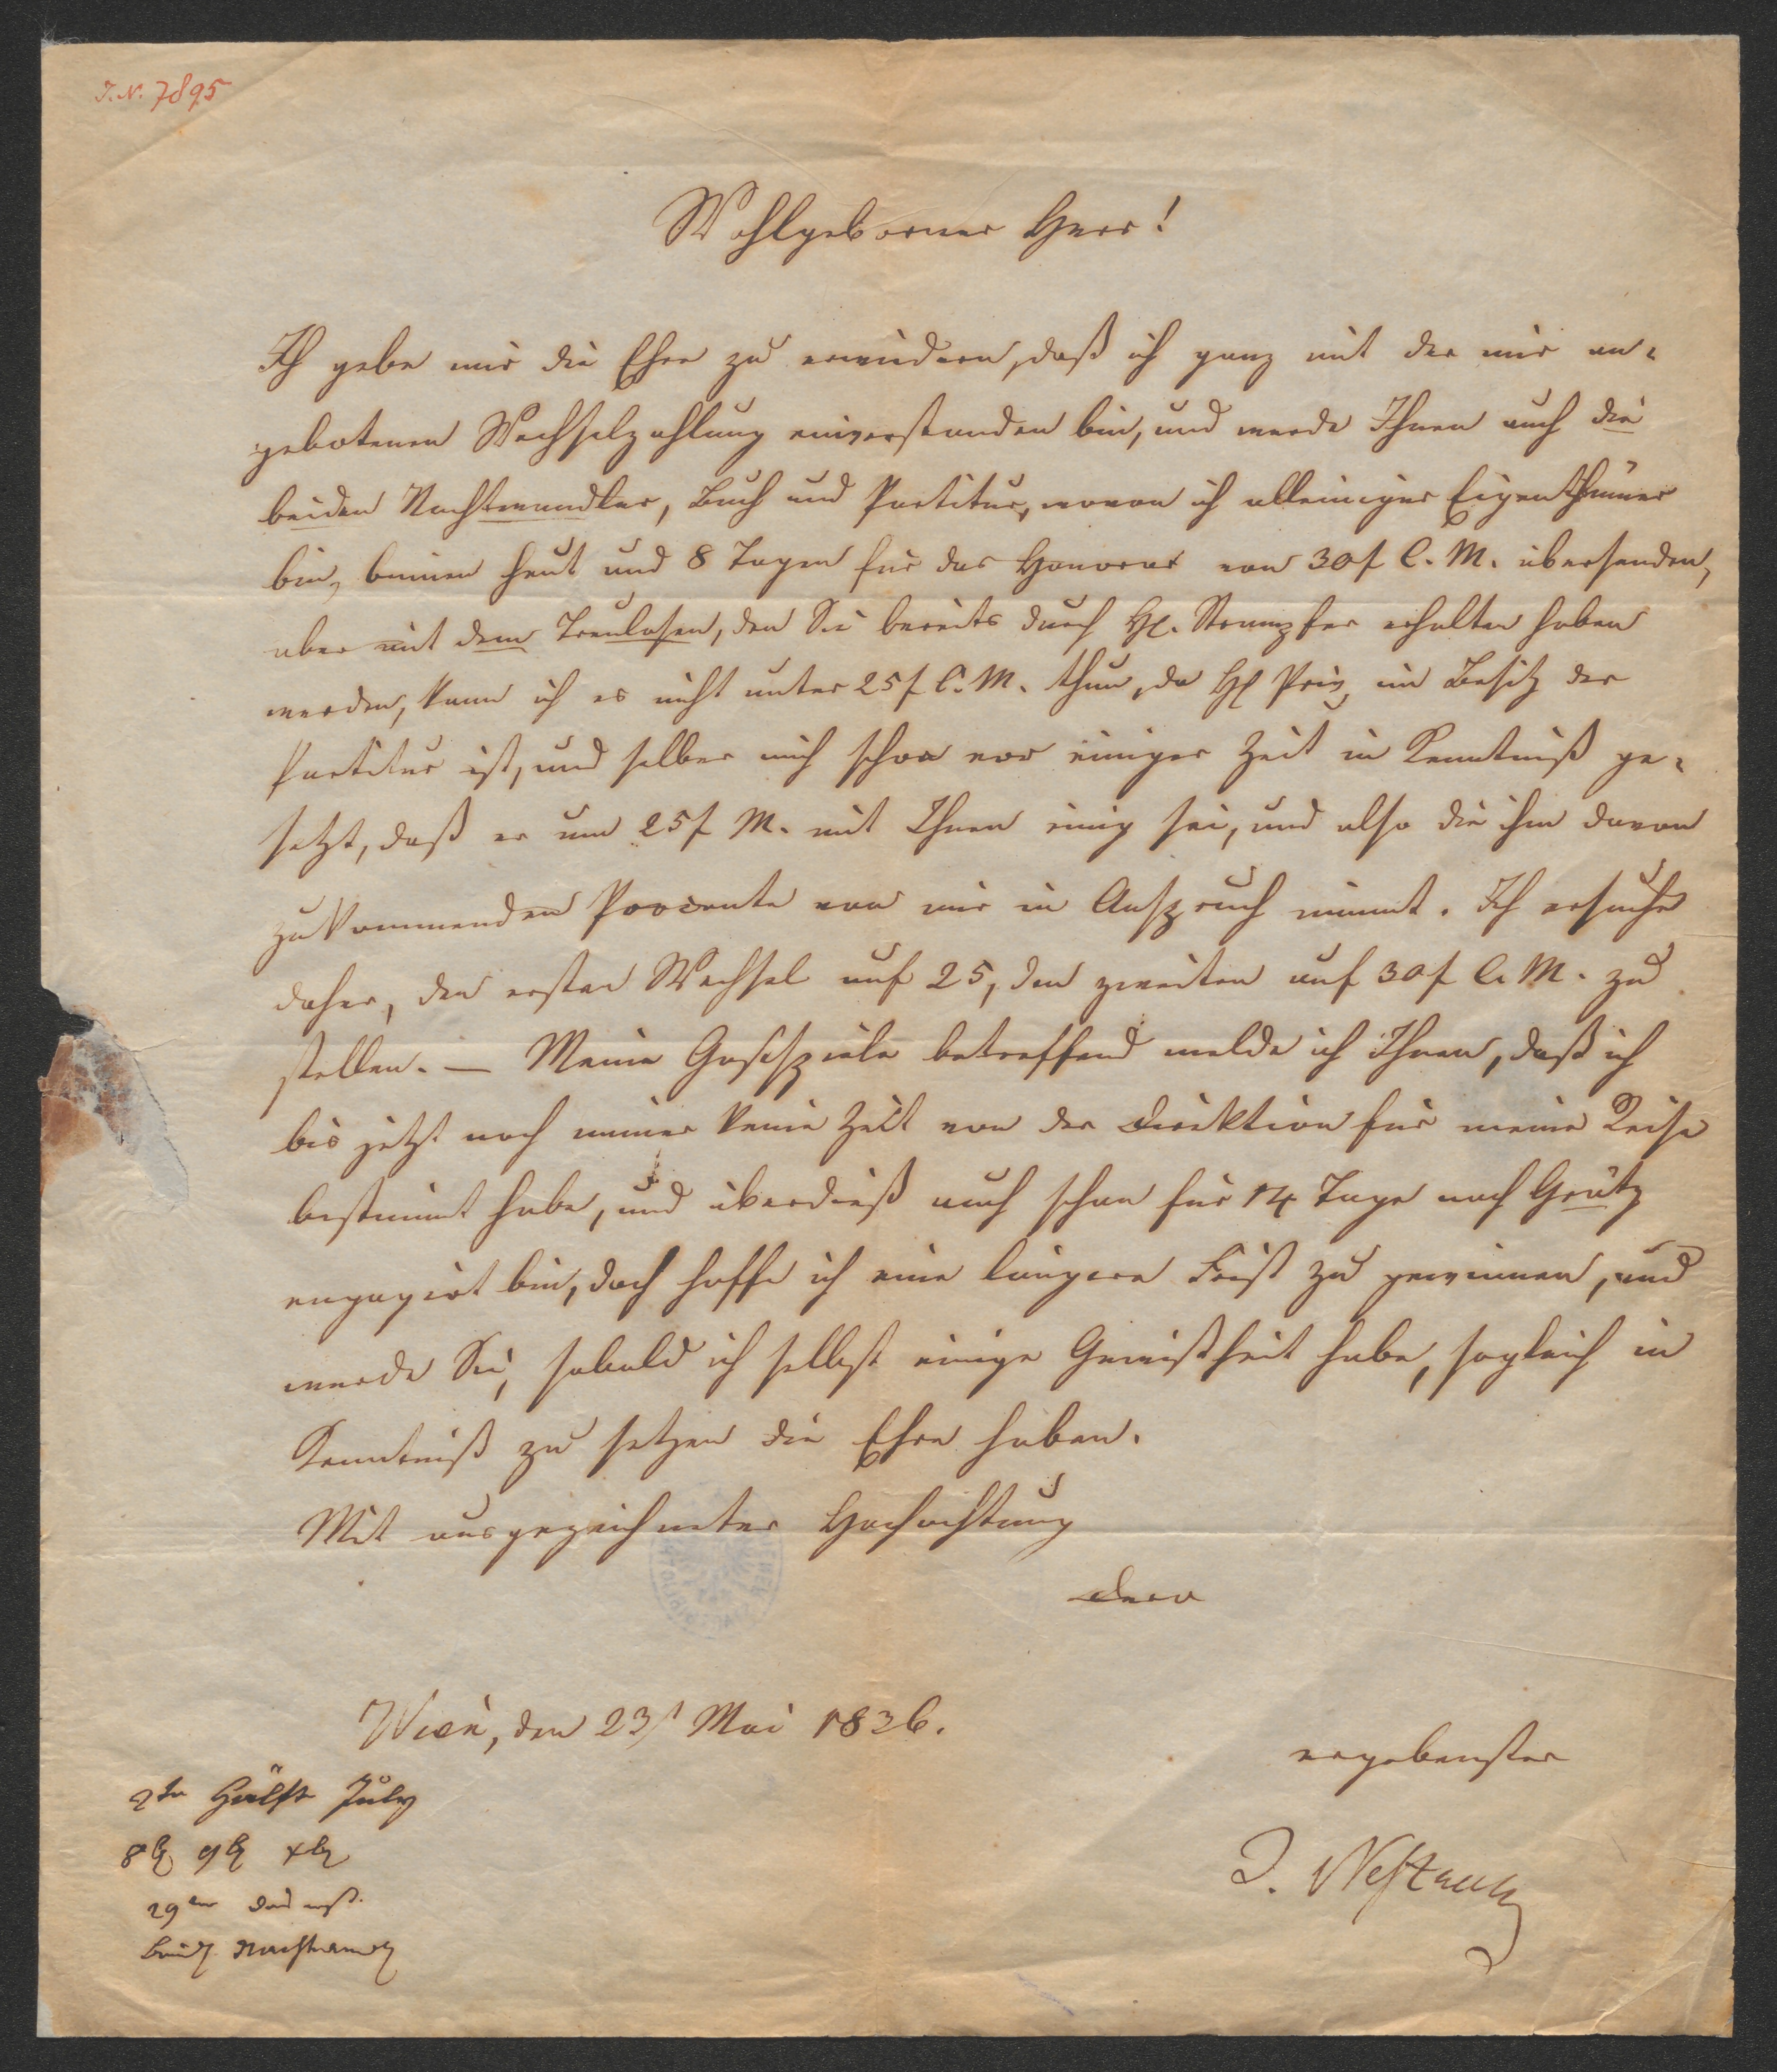 I. N. 7895
Wohlgeborner Herr!
Ich gebe mir die Ehre zu erwiedern, daß ich ganz mit der mir an-
gebotenen Wechselzahlung einverstanden bin, und werde Ihnen auch die
beiden Nachtwandler, Buch und Partitur, wovon ich alleiniger Eigenthümer
bin, binnen heut und 8 Tagen für das Honorar von 30 f C. M. übersenden,
aber mit dem Treulosen, den Sie bereits durch H. Stampfer erhalten haben
werden, kann ich es nicht unter 25 f C. M. thun, da H im Besitz der
Partitur ist, und selber mich schon vor einiger Zeit in Kenntniß ge-
setzt, daß er um 25 f M. mit Ihnen einig sei, und also die ihm davon
zukommenden Procente von mir in Anspruch nimmt. Ich ersuche
daher, den ersten Wechsel auf 25, den zweiten auf 30 f C. M. zu
stellen. — Meine Gastspiele betreffend melde ich Ihnen, daß ich
bis jetzt noch immer keine Zeit von der Direktion für meine Reise
bestimmt habe, und überdieß auch schon für 14 Tage nach Grätz
engagirt bin, doch hoffe ich eine längere Frist zu gewinnen, und
werde Sie, sobald ich selbst einige Gewißheit habe, sogleich in
Kenntniß zu setzen die Ehre haben.
Mit ausgezeichneter Hochachtung
Dero
Wien, den 23t Mai 1836.
ergebenster
J. Nestroy
2te Hälfte July
29ten
beid. Nachtwand